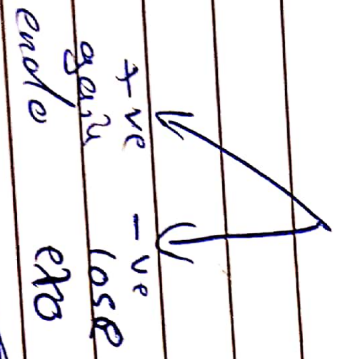 +ve -ve
gain lose
endo exo